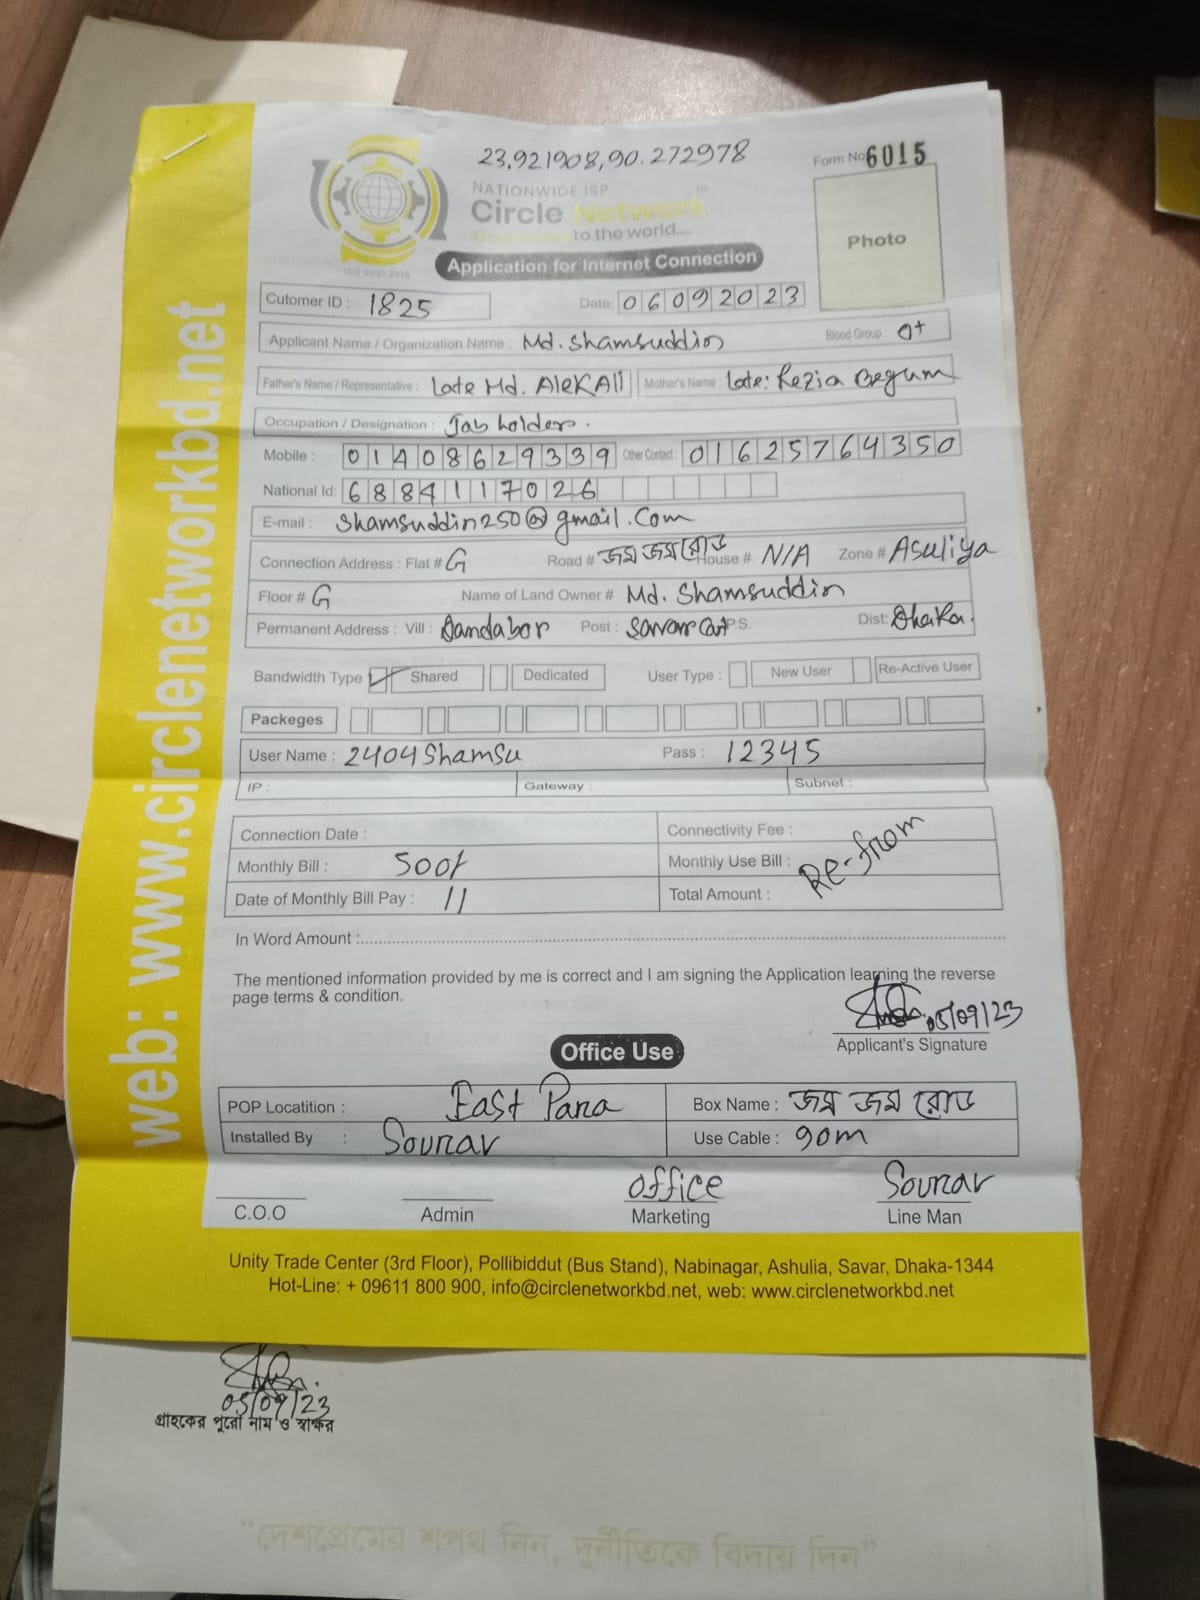 23.921908,90.272978
Form No 6015
NATIONWIDE ISP
Circle Network
to the world....
ISO 9001:2015
Photo
Application for Internet Connection
Cutomer ID : 1825 Date: 06092023
Applicant Name / Organization Name : Md. Shamsuddin Blood Group : O+
Father's Name / Representative : Late Md. AleK Ali Mother's Name : Late: Rezia Begum
Occupation / Designation : Job holder.
Mobile : 01408629339 Other Contact : 01625764350
National Id: 6884117026
E-mail : Shamsuddin250@gmail.com
Connection Address : Flat # G Road # জম জম রোড House # N/A Zone # Asuliya
Floor # G Name of Land Owner # Md. Shamsuddin
Permanent Address : Vill : Dandabor Post : Savar Cat P.S. Dist: Dhaka.
Bandwidth Type Shared Dedicated User Type : New User Re-Active User
Packeges
User Name : 2404Shamsu Pass : 12345
IP : Gateway : Subnet :
Connection Date : Connectivity Fee :
Monthly Bill : 500/ Monthly Use Bill :
Re-from
Date of Monthly Bill Pay : 11 Total Amount :
In Word Amount :
The mentioned information provided by me is correct and I am signing the Application learning the reverse
page terms & condition.
05/09/23
Applicant's Signature
Office Use
POP Locatition : East Para Box Name : জম জম রোড
Installed By : Sourav Use Cable : 90m
office Sourav
C.O.O Admin Marketing Line Man
Unity Trade Center (3rd Floor), Pollibiddut (Bus Stand), Nabinagar, Ashulia, Savar, Dhaka-1344
Hot-Line: + 09611 800 900, info@circlenetworkbd.net, web: www.circlenetworkbd.net
web: www.circlenetworkbd.net
05/09/23
গ্রাহকের পুরো নাম ও স্বাক্ষর
"দেশপ্রেমের শপথ নিন, দুর্নীতিকে বিদায় দিন"